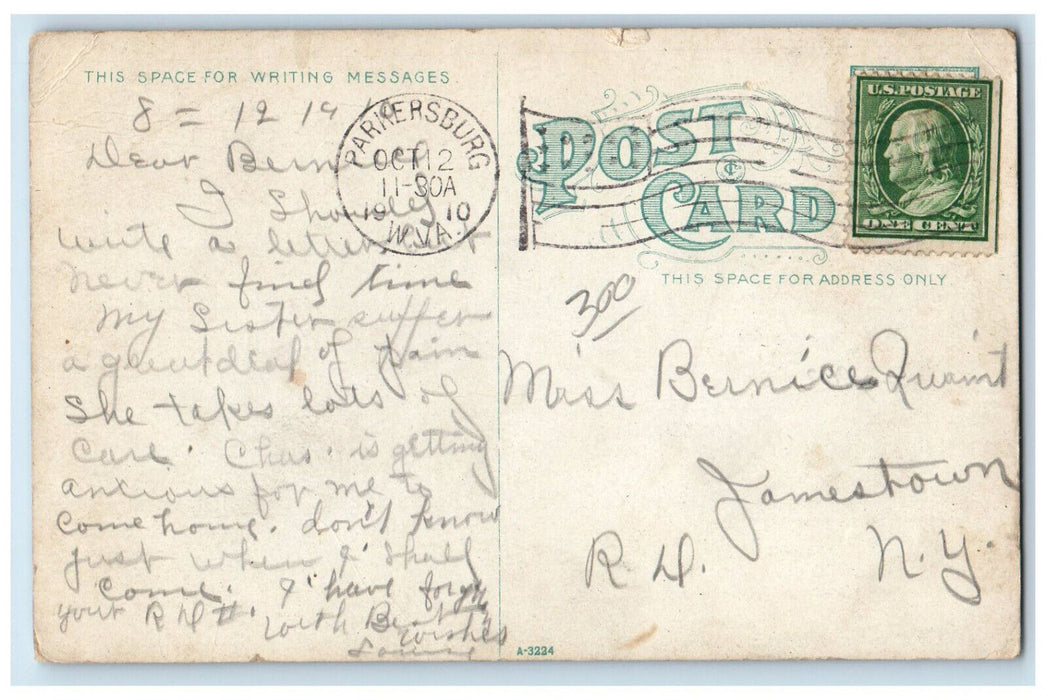 THIS SPACE FOR WRITING MESSAGES.
8 = 12 19 10
Dear Bernice
I Should
write a letter but
never find time
My Sister suffer
a great deal of pain
She takes lots of
care. Chas. is getting
anxious for me to
come home. don't know
just when I shall
come. I have forgot
your R D #. With Best
wishes
PARKERSBURG
OCT 12
11-30A
1910
W.VA.
POST CARD
U.S. POSTAGE
ONE CENT
THIS SPACE FOR ADDRESS ONLY.
300
Miss Bernice
Jamestown
R. D. N. Y.
A-3224